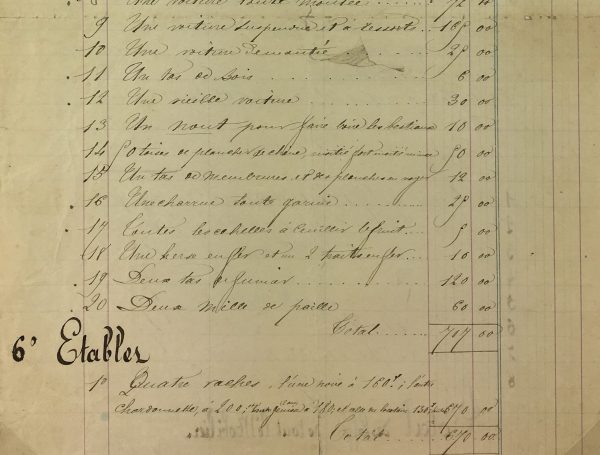 8 Une voiture toute montée
9 Une voiture suspendue et à ressorts 165 00
10 Une voiture démontée 25 00
11 Un tas de bois 6 00
12 Une vieille voiture 30 00
13 Un pour faire boire les bestiaux 10 00
14 toises de plancher de chêne, moitié fort moitié mince 50 00
15 Un tas de membrures, et des planches en 12 00
16 Une charrue toute garnie 25 00
17 Toutes les échelles à cueillir le fruit 5 00
18 Une herse en fer et un 2 traits en fer 10 00
19 Deux tas de fumier 120 00
20 Deux mille de paille 60 00
Total 00
6° Etables
1° Quatre vaches, l'une noire à 160f; l'autre
chardonnette, à 200; 670 00
Total 670 00